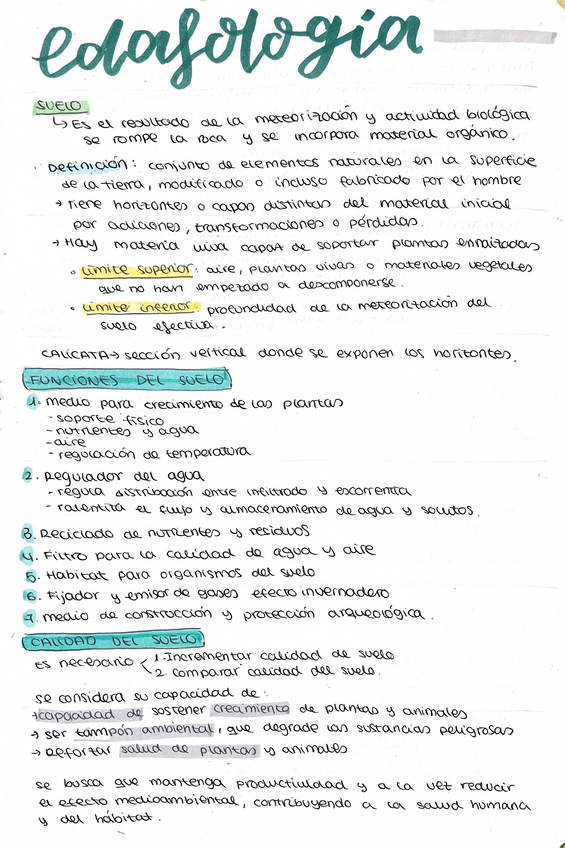 edafología
SUELO
↳ Es el resultado de la meteorización y actividad biológica
se rompe la roca y se incorpora material orgánico.
· Definición: conjunto de elementos naturales en la superficie
de la tierra, modificado o incluso fabricado por el hombre
→ Tiene horizontes o capas distintas del material inicial
por adiciones, transformaciones o pérdidas.
→ Hay materia viva capaz de soportar plantas enraizadas
• Límite superior: aire, plantas vivas o materiales vegetales
que no han empezado a descomponerse.
• Límite inferior: profundidad de la meteorización del
suelo efectiva.
CALICATA → sección vertical donde se exponen los horizontes.
FUNCIONES DEL SUELO
1. Medio para crecimiento de las plantas
- soporte físico
- nutrientes y agua
- aire
- regulación de temperatura
2. Regulador del agua
- regula distribución entre infiltrado y escorrentía
- ralentiza el flujo y almaceramiento de agua y solutos.
3. Reciclado de nutrientes y residuos
4. Filtro para la calidad de agua y aire
5. Habitat para organismos del suelo
6. Fijador y emisor de gases efecto invernadero
7. medio de construcción y protección arqueológica.
CALIDAD DEL SUELO
Es necesario < 1. Incrementar calidad de suelo
2. Comparar calidad del suelo.
se considera su capacidad de:
→ capacidad de sostener crecimiento de plantas y animales
→ ser tampón ambiental, que degrade las sustancias peligrosas
→ Reforzar salud de plantas y animales
se busca que mantenga productividad y a la vez reducir
el efecto medioambiental, contribuyendo a la salud humana
y del hábitat.